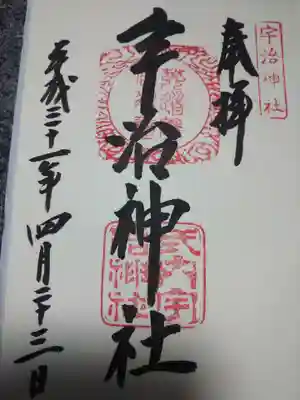 宇治神社
奉拝
宇治神社
平成三十一年四月二十三日